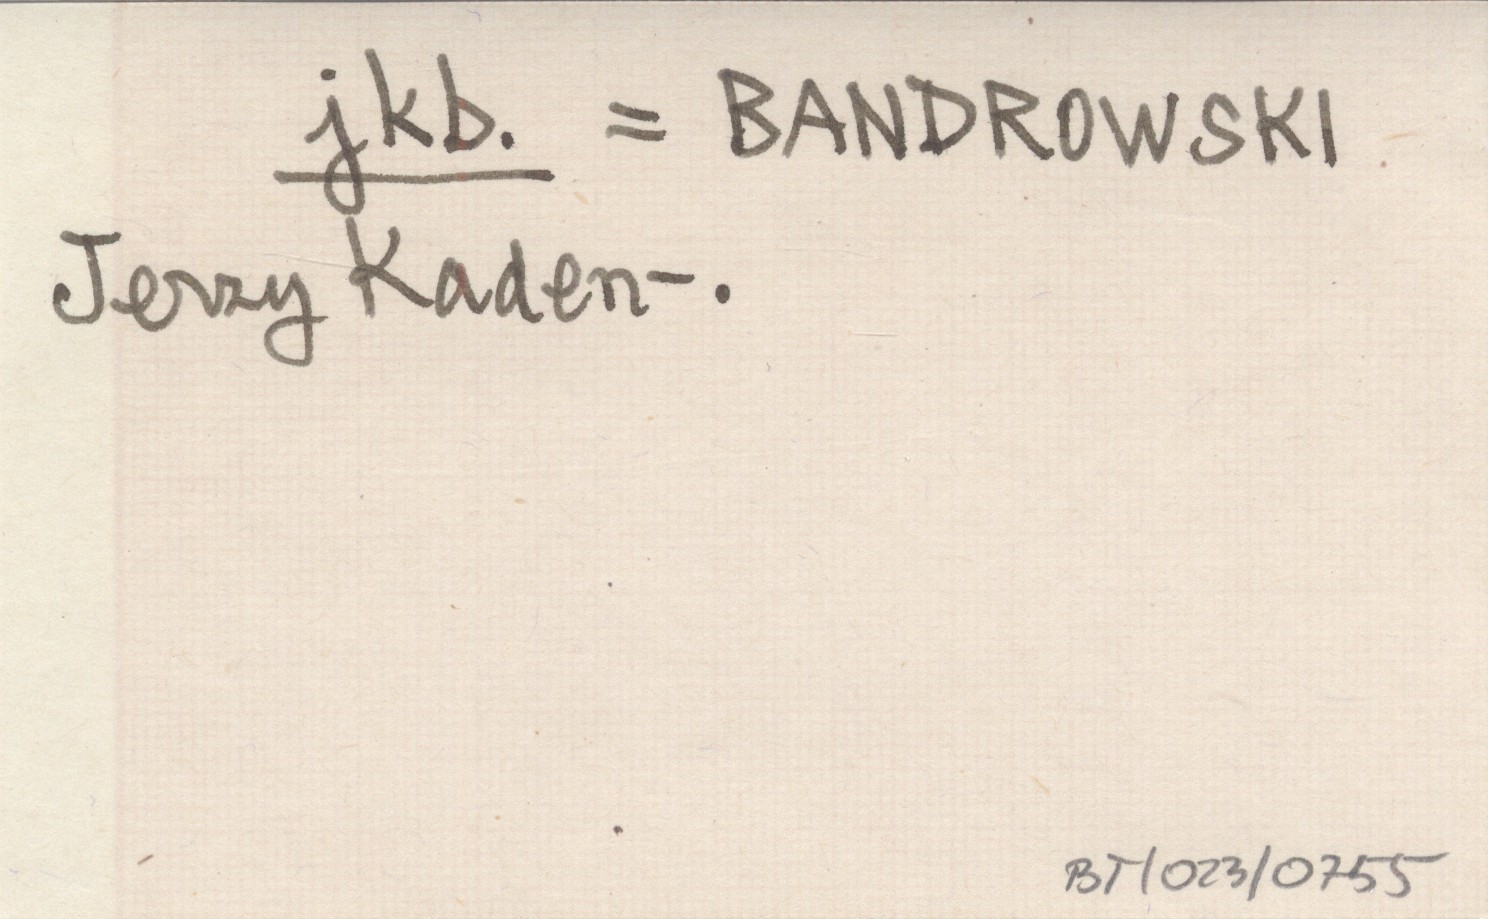 jkb. = BANDROWSKI
Jerzy Kaden-.
BT/023/0755